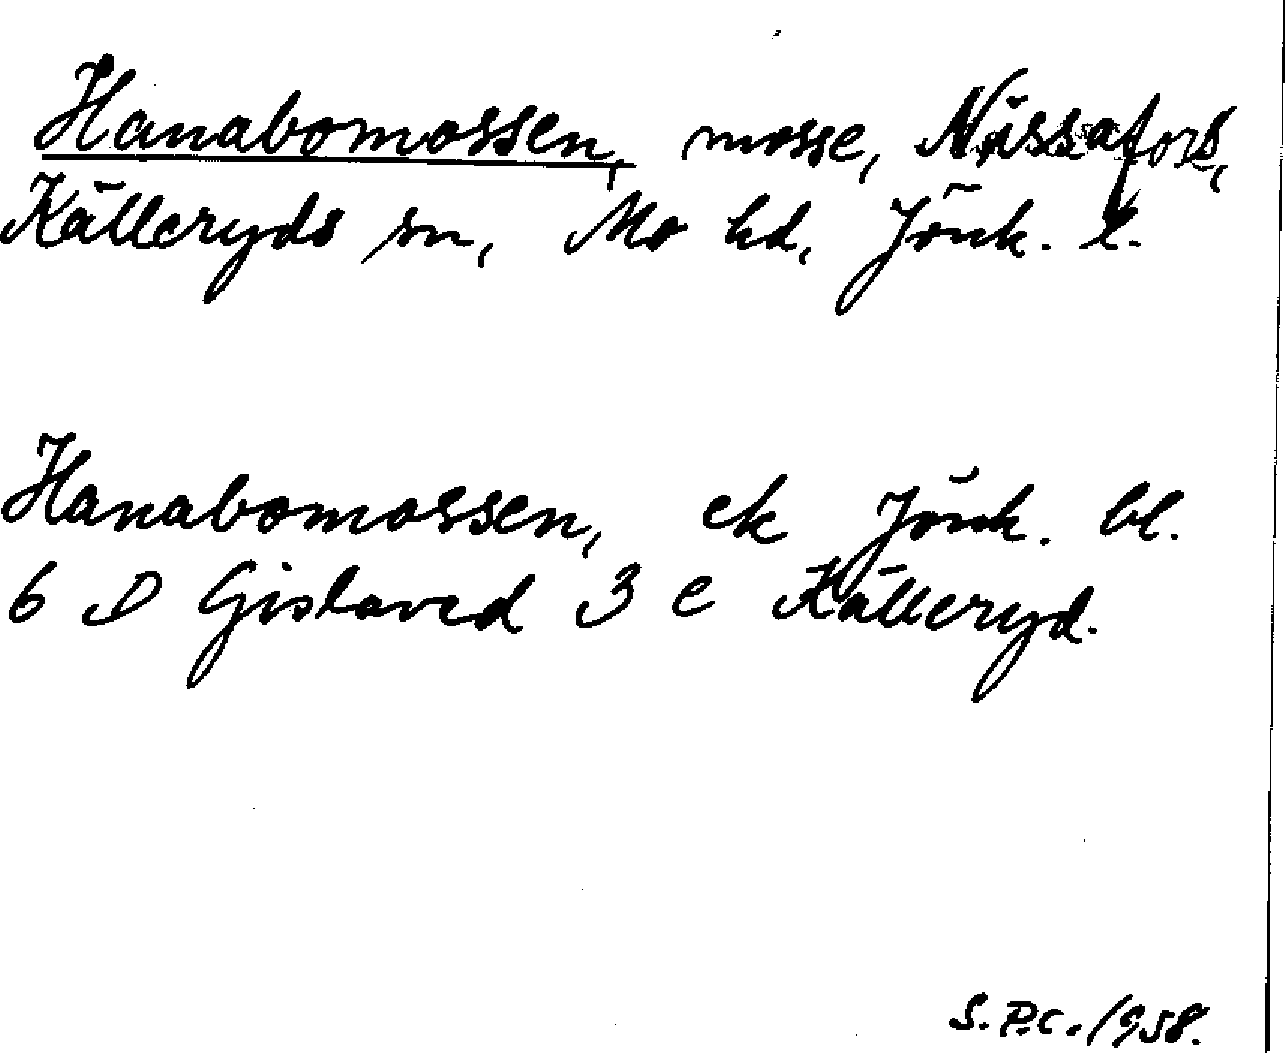 Hanabomossen, mosse, Nissafors,
Källeryds sn, Mo hd, Jönk. l.
Hanabomossen, ek Jönk. bl.
6 D Gislaved 3 e Källeryd.
S.P.C. 1958.